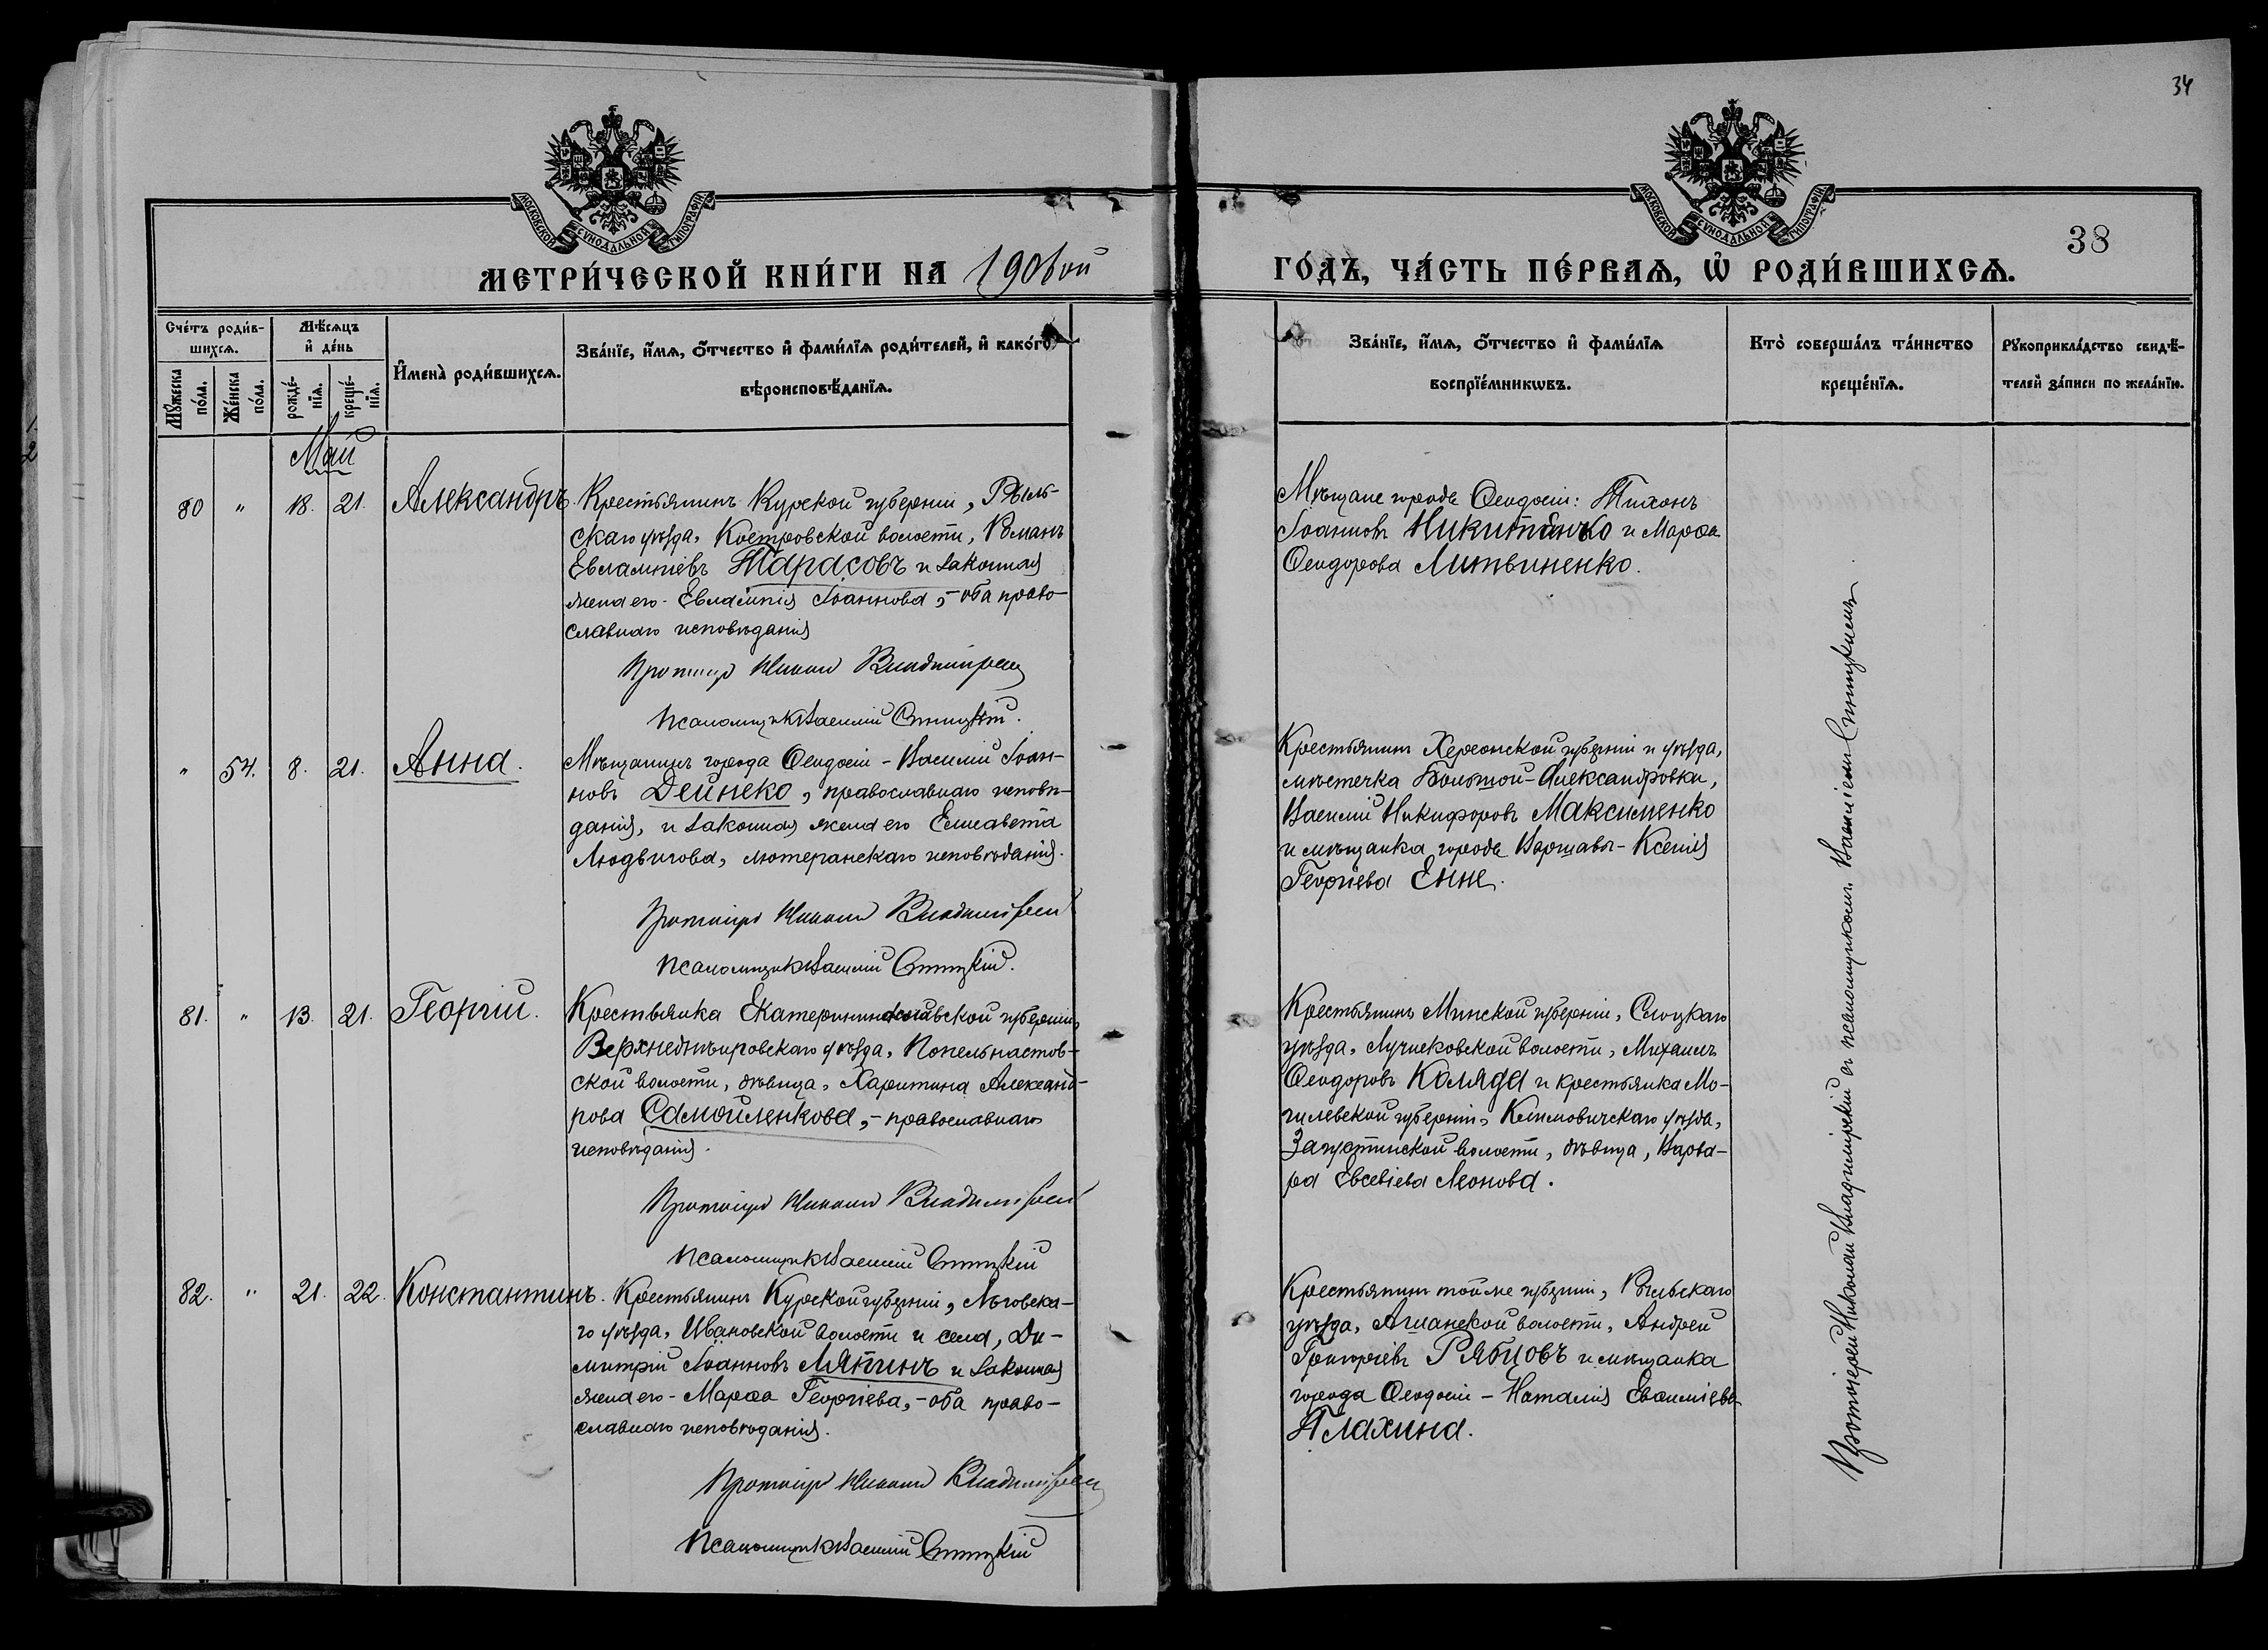 34
МОСКОВСКОЙ СѴНОДАЛЬНОЙ ТИПОГРАФІИ
МОСКОВСКОЙ СѴНОДАЛЬНОЙ ТИПОГРАФІИ
38
МЕТРИ́ЧЕСКОЙ КНИ́ГИ НА 1906ой
ГО́ДЪ, ЧА́СТЬ ПЕ́РВАѦ, Ѡ҆ РОДИ́ВШИХСѦ.
Сче́тъ роди́в-
шихсѧ.
Мѣ́сѧцъ
и҆ де́нь
Мꙋ́жеска
по́ла.
Же́нска
по́ла.
рожде́-
нїѧ.
креще́-
нїѧ.
И҆мена̀ роди́вшихсѧ.
Зва́нїе, и҆́мѧ, ѻ҆́тчество и҆ фами́лїѧ роди́телей, и҆ како́гѡ
вѣроисповѣ́данїѧ.
Зва́нїе, и҆́мѧ, ѻ҆́тчество и҆ фами́лїѧ
воспрїе́мникѡвъ.
Кто̀ соверша́лъ та́инство
креще́нїѧ.
Рꙋкоприкла́дство свидѣ́-
телей за́писи по жела́нїю.
Май
80 " 18. 21. Александръ.
Крестьянинъ Курской губерніи, Рыль-
скаго уѣзда, Костровской волости, Романъ
Евлампіевъ Тарасовъ и законная
жена его - Евлампія Іоаннова, - оба право-
славнаго исповѣданія
Протоіер Николай Владимірскій
Псаломщикъ Василій Синицкій.
Мѣщане города Ѳеодосіи: Тихонъ
Іоанновъ Никитенко и Марѳа
Ѳеодорова Литвиненко.
" 54. 8. 21. Анна.
Мѣщанинъ города Ѳеодосіи - Василій Іоан-
новъ Дейнеко, православнаго исповѣ-
данія, и законная жена его Елисавета
Людвигова, лютеранскаго исповѣданія.
Протоіер Николай Владимірскій
Псаломщикъ Василій Синицкій.
Крестьянинъ Херсонской губерніи и уѣзда,
мѣстечка Большой-Александровки,
Василій Никифоровъ Максименко
и мѣщанка города Варшавы - Ксенія
Георгіева Енне.
81. " 13. 21. Георгій.
Крестьянка Екатеринославской губерніи,
Верхнеднѣпровскаго уѣзда, Попельнастов-
ской волости, дѣвица, Харитина Александ-
рова Самойленкова, - православнаго
исповѣданія.
Протоіер Николай Владимірскій
Псаломщикъ Василій Синицкій
Крестьянинъ Минской губерніи, Слуцкаго
уѣзда, волости, Михаилъ
Ѳеодоровъ Коляда и крестьянка Мо-
гилевской губерніи, Климовичскаго уѣзда,
волости, дѣвица, Варва-
ра Евсевіева Леонова.
82. " 21. 22. Константинъ.
Крестьянинъ Курской губерніи, Льговска-
го уѣзда, Ивановской волости и села, Ди-
митрій Іоанновъ Ляпинъ и законная
жена его - Марѳа Георгіева, - оба право-
славнаго исповѣданія.
Протоіер Николай Владимірскій
Псаломщикъ Василій Синицкій
Крестьянинъ той же губерніи, Рыльскаго
уѣзда, волости, Андрей
Григоріевъ Рябцовъ и мѣщанка
города Ѳеодосіи - Наталія Евѳиміева
Плахина.
Протоіерей Николай Владимірскій съ псаломщикомъ Василіемъ Синицкимъ